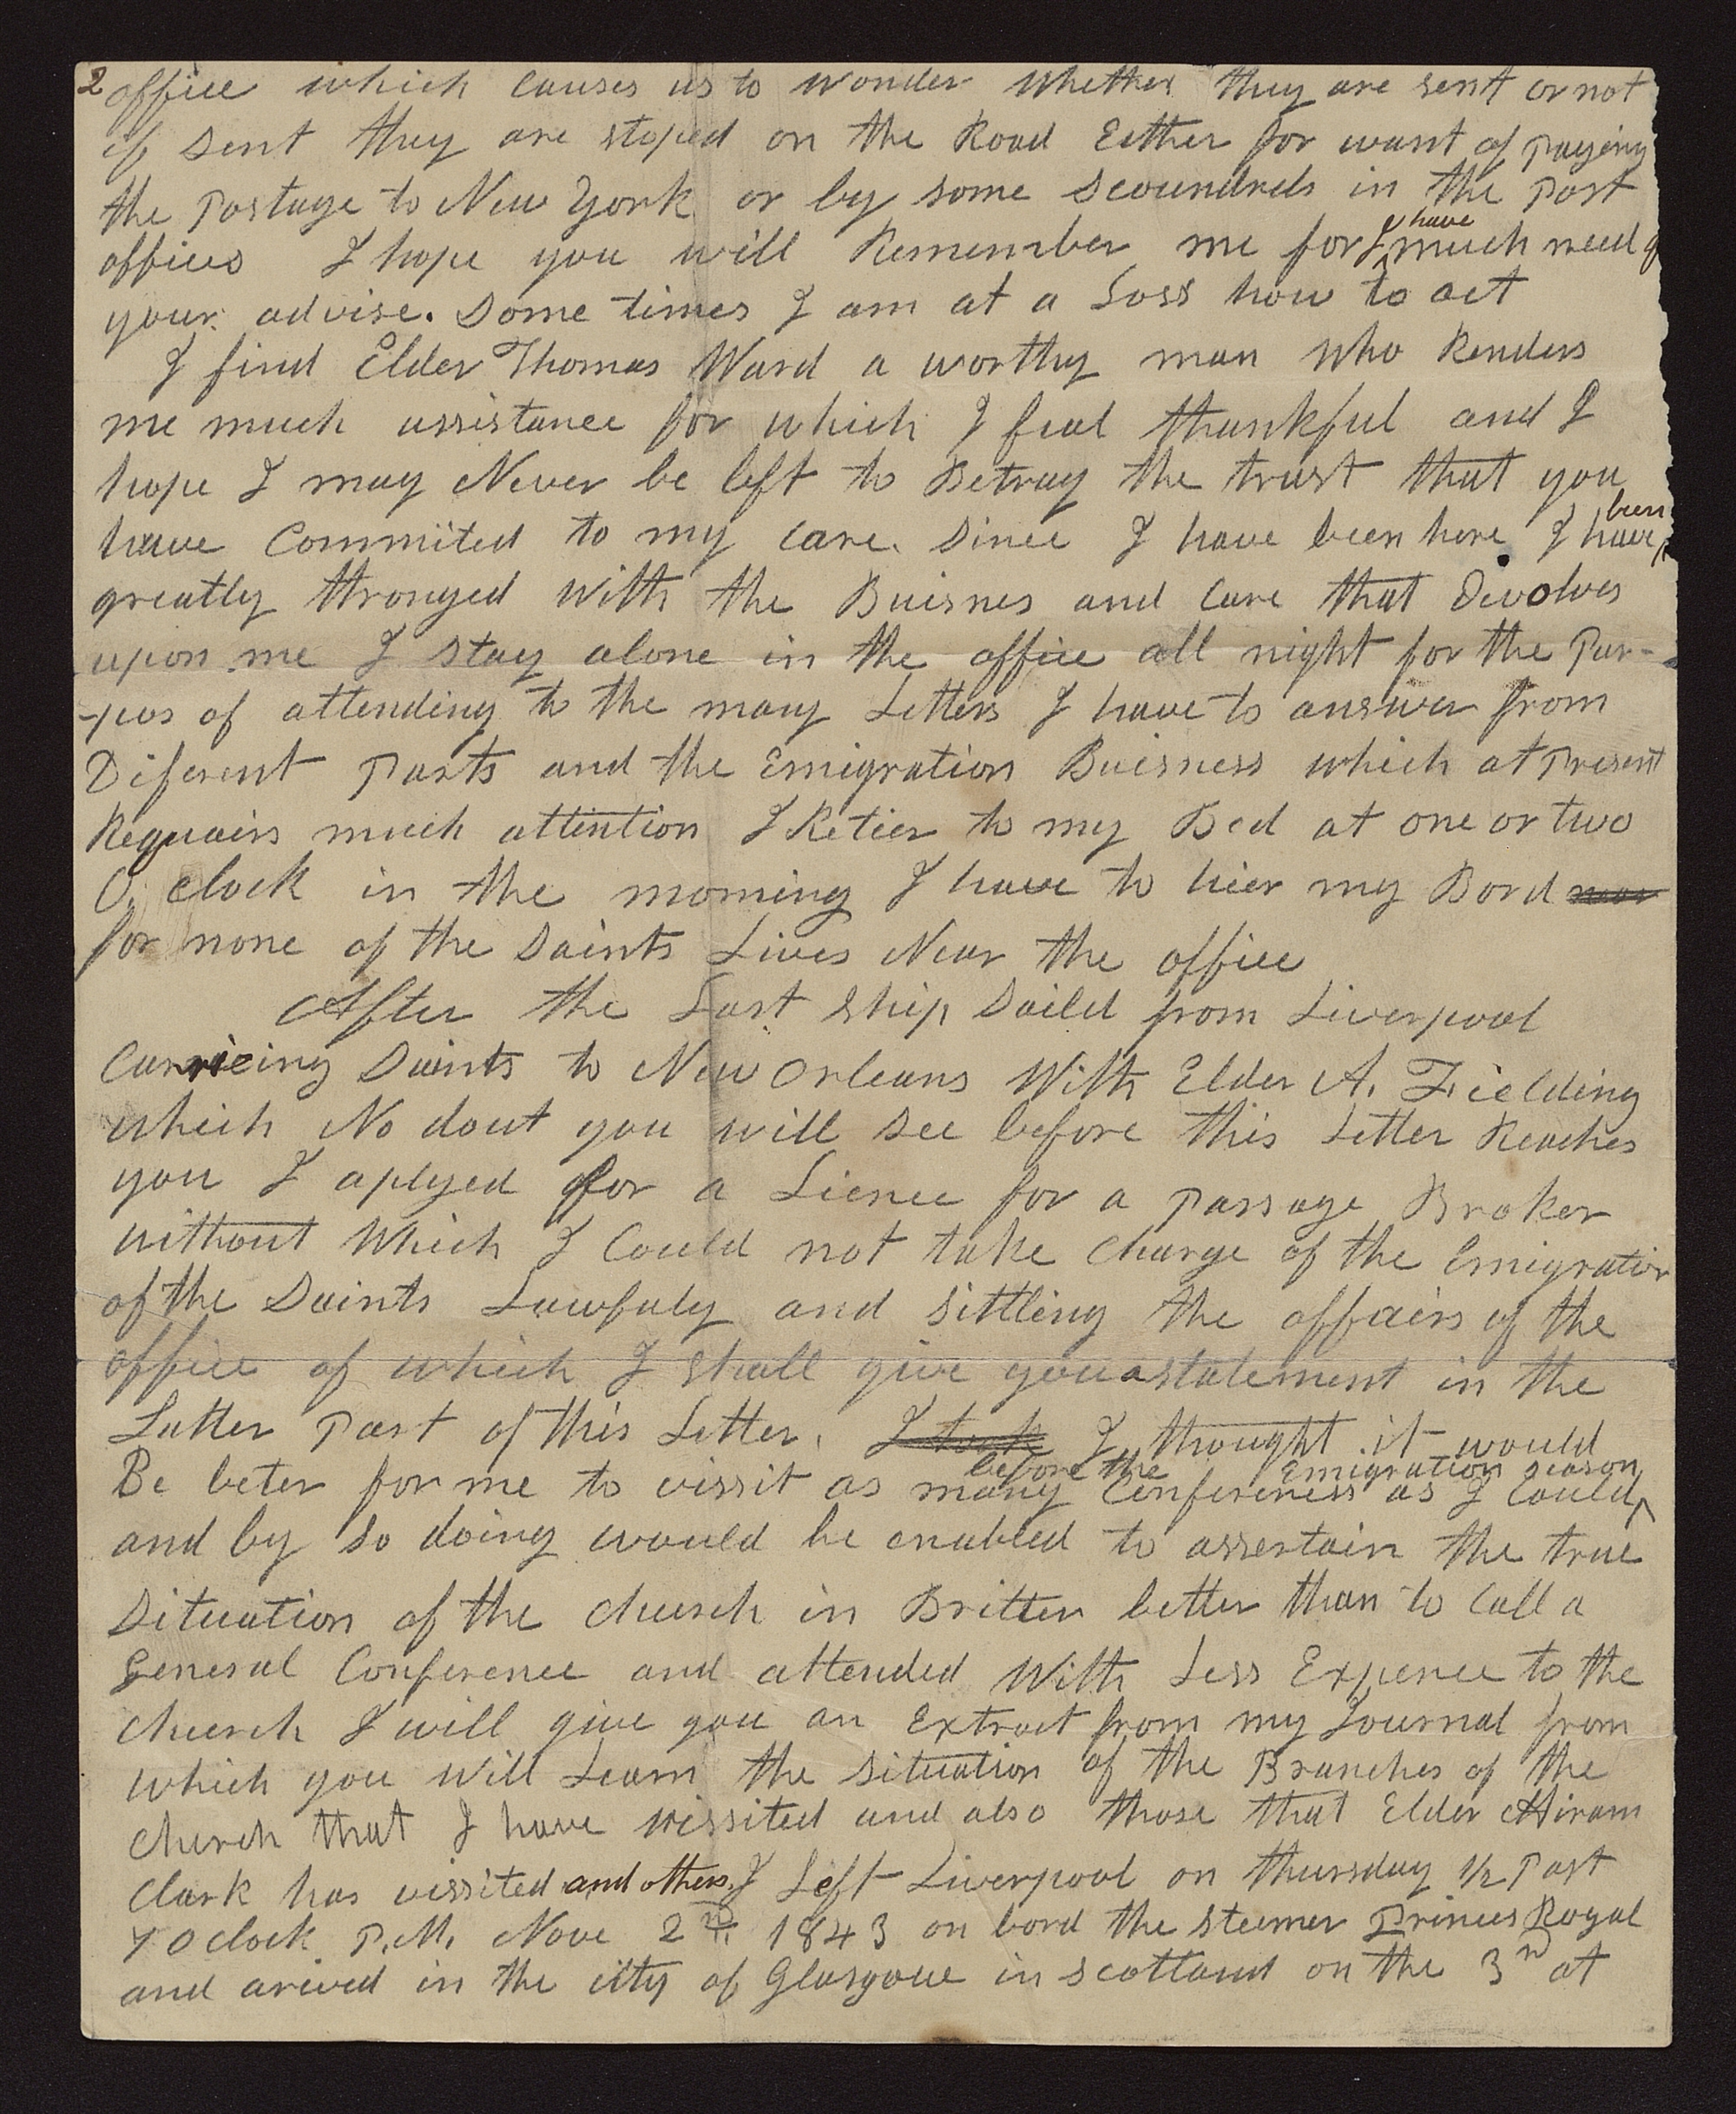 2 office which causes us to wonder whether they are sent or not
if sent they are stoped on the Road Either for want of paying
the Postage to New York or by some scoundrels in the Post
offices I hope you will Remember me for I have much need of
your advise. Some times I am at a Loss how to act
I find Elder Thomas Ward a worthy man who Renders
me much assistance for which I feal thankful and I
hope I may Never be left to Betray the trust that you
have Commited to my care. Since I have been here I have been
greatly thronged with the Buisnes and Care that Divolves
upon me I stay alone in the office all night for the Pur-
-pos of attending to the many Letters I have to answer from
Diferent Parts and the Emigration Buisness which at Present
Requairs much attention I Retier to my Bed at one or two
O. clock in the morning I have to hier my Bord
for none of the Saints Lives Near the office
After the Last Ship Saild from Liverpool
Carrieing Saints to New Orleans With Elder A. Fielding
which No dout you will see before this Letter Reaches
you I aplyed for a Licnce for a Passage Broker
without Which I Could not take charge of the Emigration
of the Saints Lawfuly and sittling the affairs of the
office of which I shall give you a statement in the
Latter Part of this Letter. I took I thought it would
before the Emigration season
Be beter for me to vissit as many Conferences as I Could
and by so doing would be enabled to assertain the true
Situation of the church in Britten better than to Call a
General Conference and attended With Less Expence to the
church I will give you an Extract from my Journal from
which you Will Learn the situation of the Branches of the
church that I have vissited and also those that Elder Hiram
Clark has vissited and others. I Left Liverpool on thursday 1/2 Past
4 O clock P.M. Nove 2nd. 1843 on bord the steemer Princes Royal
and arived in the city of Glasgowe in scotland on the 3rd at